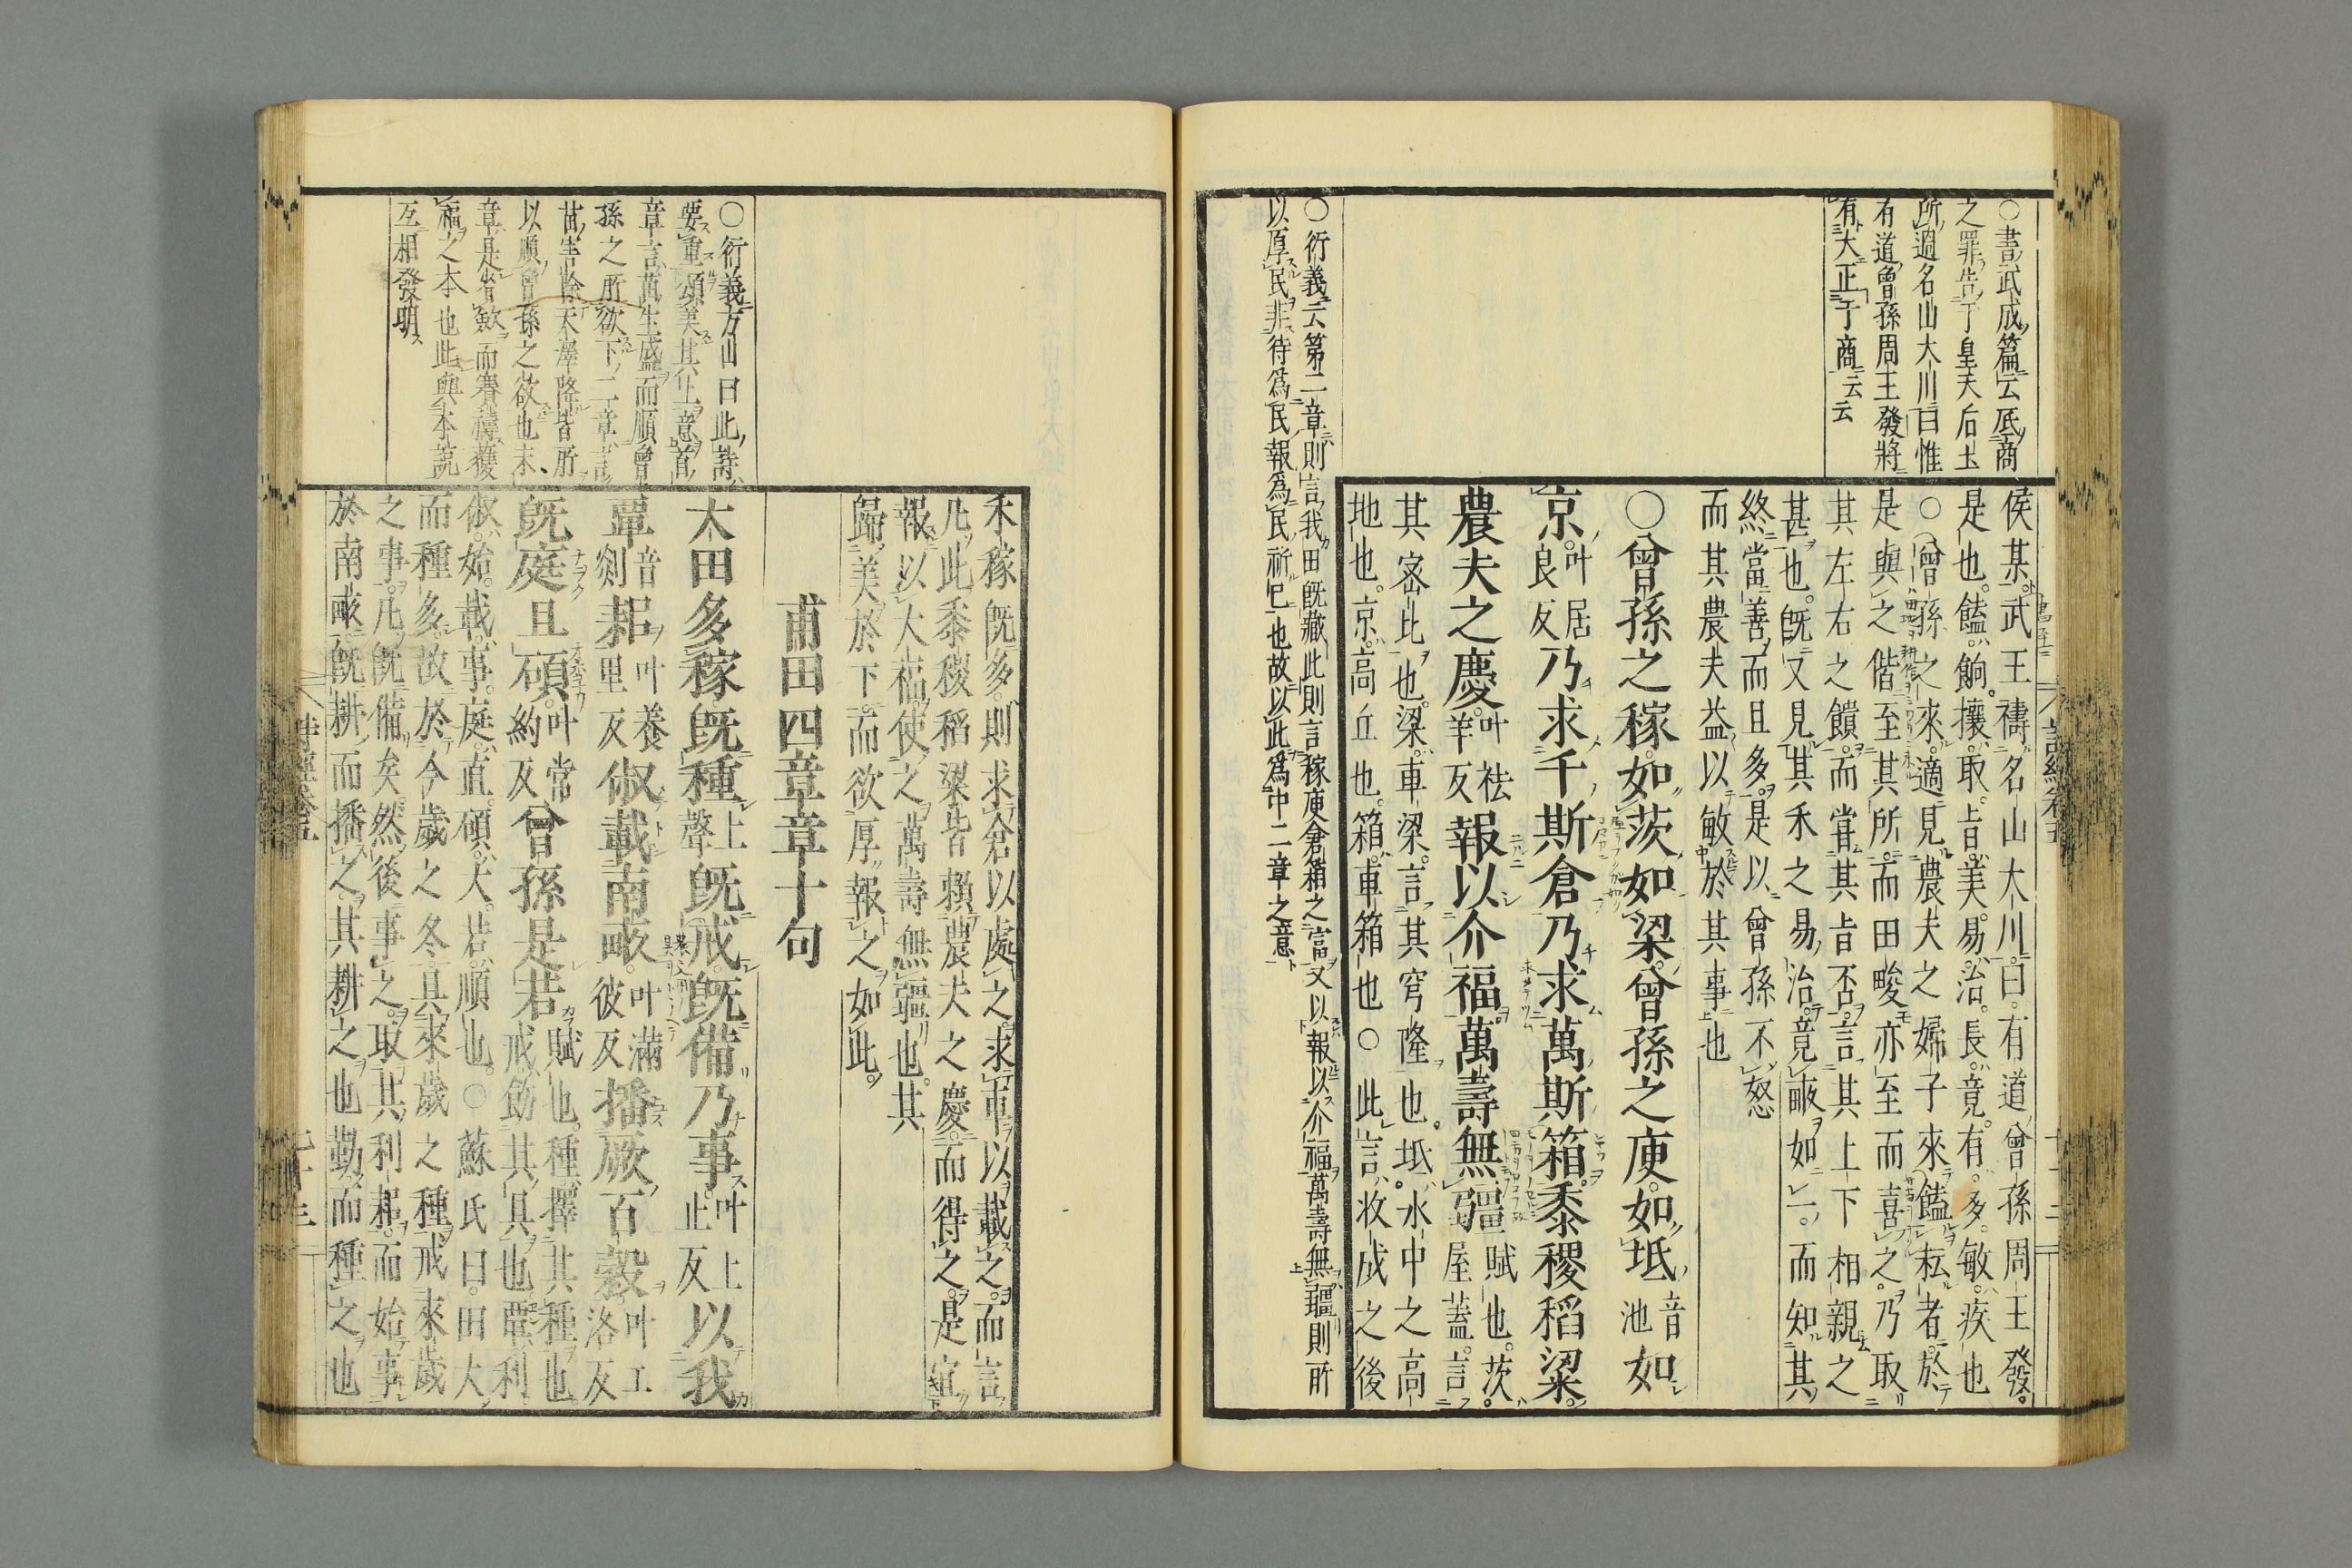 ○書武成篇云底商
之罪告于皇天后土
所過名山大川曰惟
有道曾孫周王發將
有大正于商云云
侯某武王禱名山大川曰有道曾孫周王發
是也饁餉攘取旨美易治長竟有多敏疾也
○曾孫之來適見農夫之婦子來饁耘者於
是與之偕至其所而田畯亦至而喜之乃取
其左右之饋而甞其旨否言其上下相親之
甚也既又見其禾之易治竟畝如一而知其
終當善而且多是以曾孫不怒
而其農夫益以敏於其事也
○曾孫之稼如茨如梁曾孫之庾如坻音池如
京叶居良反乃求千斯倉乃求萬斯箱黍稷稻粱
農夫之慶叶祛羊反報以介福萬壽無疆賦也茨屋蓋言
其宻比也梁車梁言其穹隆也坻水中之高
地也京高丘也箱車箱也○此言收成之後
○衍義云第二章則言我田既藏此則言稼庾倉箱之富又以報以介福萬壽無疆則所
以厚民非待為民報為民祈已也故以此為中二章之意
禾稼既多則求倉以處之求車以載之而言
凡此黍稷稻粱皆頼農夫之慶而得之是宜
報以大福使之萬壽無疆也其
歸美於下而欲厚報之如此
甫田四章章十句
○衍義方山曰此詩
要重頌美其上意首
章言萬生盛而順曾
孫之所欲下二章言
苗害除天澤降皆所
以順曾孫之欲也末
章是省斂而賽禱獲
福之本也此與本説
互相發明
大田多稼既種上聲既戒既備乃事叶上止反以我
覃音剡耜叶養里反俶載南畝叶滿彼反播厥百穀叶工洛反
既庭且碩叶常約反曾孫是若賦也種擇其種也戒飭其具也覃利
俶始載事庭直碩大若順也○蘇氏曰田大
而種多故於今歲之冬具來歲之種戒來歲
之事凡既備矣然後事之取其利耜而始事
於南畝既耕而播之其耕之也勤而種之也